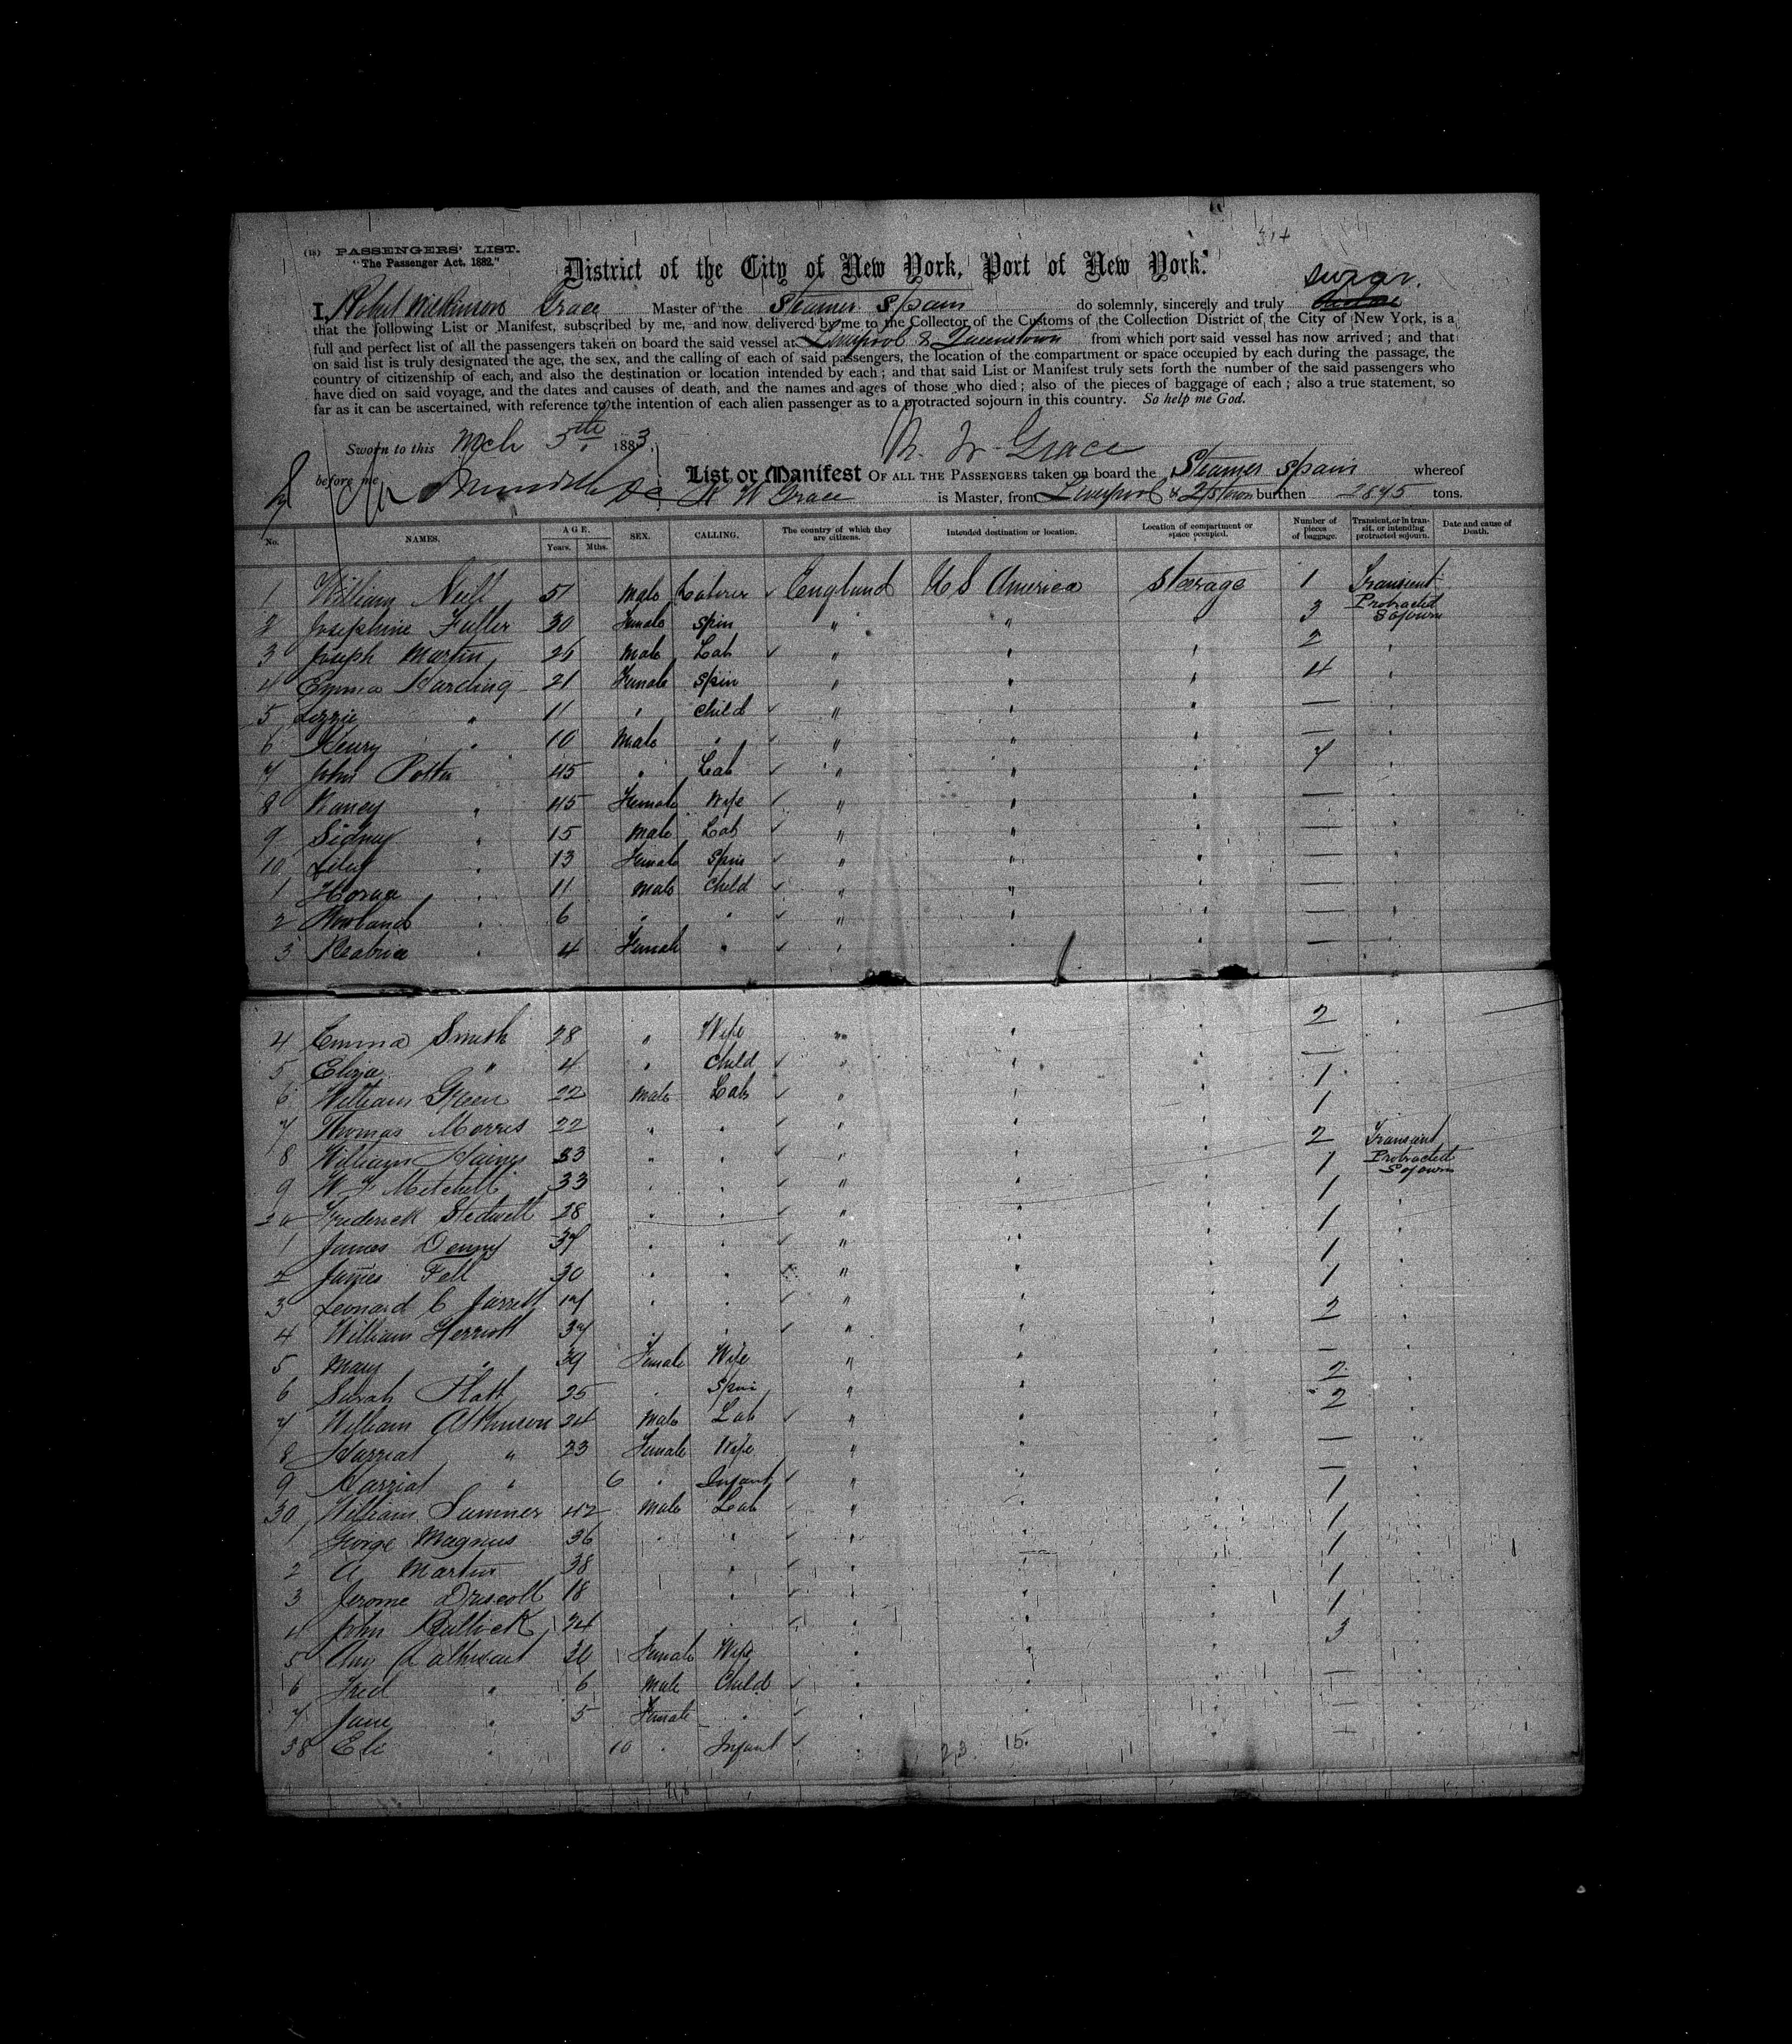 (18) PASSENGERS' LIST.
"The Passenger Act, 1882."
District of the City of New York, Port of New York.
I, Robert Wilkinson Grace Master of the Steamer Spain do solemnly, sincerely and truly swear
that the following List or Manifest, subscribed by me, and now delivered by me to the Collector of the Customs of the Collection District of the City of New York, is a
full and perfect list of all the passengers taken on board the said vessel at Liverpool & Queenstown from which port said vessel has now arrived; and that
on said list is truly designated the age, the sex, and the calling of each of said passengers, the location of the compartment or space occupied by each during the passage, the
country of citizenship of each, and also the destination or location intended by each; and that said List or Manifest truly sets forth the number of the said passengers who
have died on said voyage, and the dates and causes of death, and the names and ages of those who died; also of the pieces of baggage of each; also a true statement, so
far as it can be ascertained, with reference to the intention of each alien passenger as to a protracted sojourn in this country. So help me God.
Sworn to this Mch 5th 1883. R. W. Grace
before me
List or Manifest OF ALL THE PASSENGERS taken on board the Steamer Spain whereof
R W Grace is Master, from Liverpool & Q'stown burthen 2845 tons.
No. NAMES. AGE. Years. Mths. SEX. CALLING. The country of which they are citizens. Intended destination or location. Location of compartment or space occupied. Number of pieces of baggage. Transient, or in transit, or intending protracted sojourn. Date and cause of Death.
1 William Neill 51 Male Laborer England U S America Steerage 1 Transient
2 Josephine Fuller 30 Female Spin " " " 3 Protracted Sojourn
3 Joseph Martin 26 Male Lab " " " 2 "
4 Emma Harding 21 Female Spin " " " 4 "
5 Lizzie " 11 " Child " " " — "
6 Henry " 10 Male " " " " — "
7 John Potter 45 " Lab " " " 7 "
8 Nancy " 45 Female Wife " " " — "
9 Sidney " 15 Male Lab " " " — "
10 Lily " 13 Female Spin " " " — "
1 Horace " 11 Male Child " " " — "
2 Rowland " 6 " " " " " — "
3 Beatrice " 4 Female " " " " — "
4 Emma Smith 28 " Wife " " " 2 "
5 Eliza " 4 " Child " " " — "
6 William Green 22 Male Lab " " " 1
7 Thomas Morris 22 " " " " " 1
8 William Haines 33 " " " " " 2 Transient
9 W Mitchell 33 " " " " " 1 Protracted Sojourn
20 Frederick Stedwell 28 " " " " " 1 "
1 James Denny 37 " " " " " 1 "
2 James Fell 30 " " " " " 1 "
3 Leonard C Jarrett 17 " " " " " 1 "
4 William Herriott 37 " " " " " 2 "
5 Mary " 39 Female Wife " " " — "
6 Sarah Platt 25 " Spin " " " 2 "
7 William Atkinson 24 Male Lab " " " 2 "
8 Harriat " 23 Female Wife " " " — "
9 Harriat " 6 " Infant " " " — "
30 William Sumner 42 Male Lab " " " 1 "
1 George Magnus 36 " " " " " 1 "
2 A Martin 38 " " " " 1 "
3 Jerome Driscoll 18 " " " " 1 "
4 John Bullock 24 " " " " 1 "
5 Ann 30 Female Wife " " " 3 "
6 Fred " 6 Male Child " " " — "
7 Jane " 5 Female " " " " — "
38 Eli " 10 " Infant " —
23 15